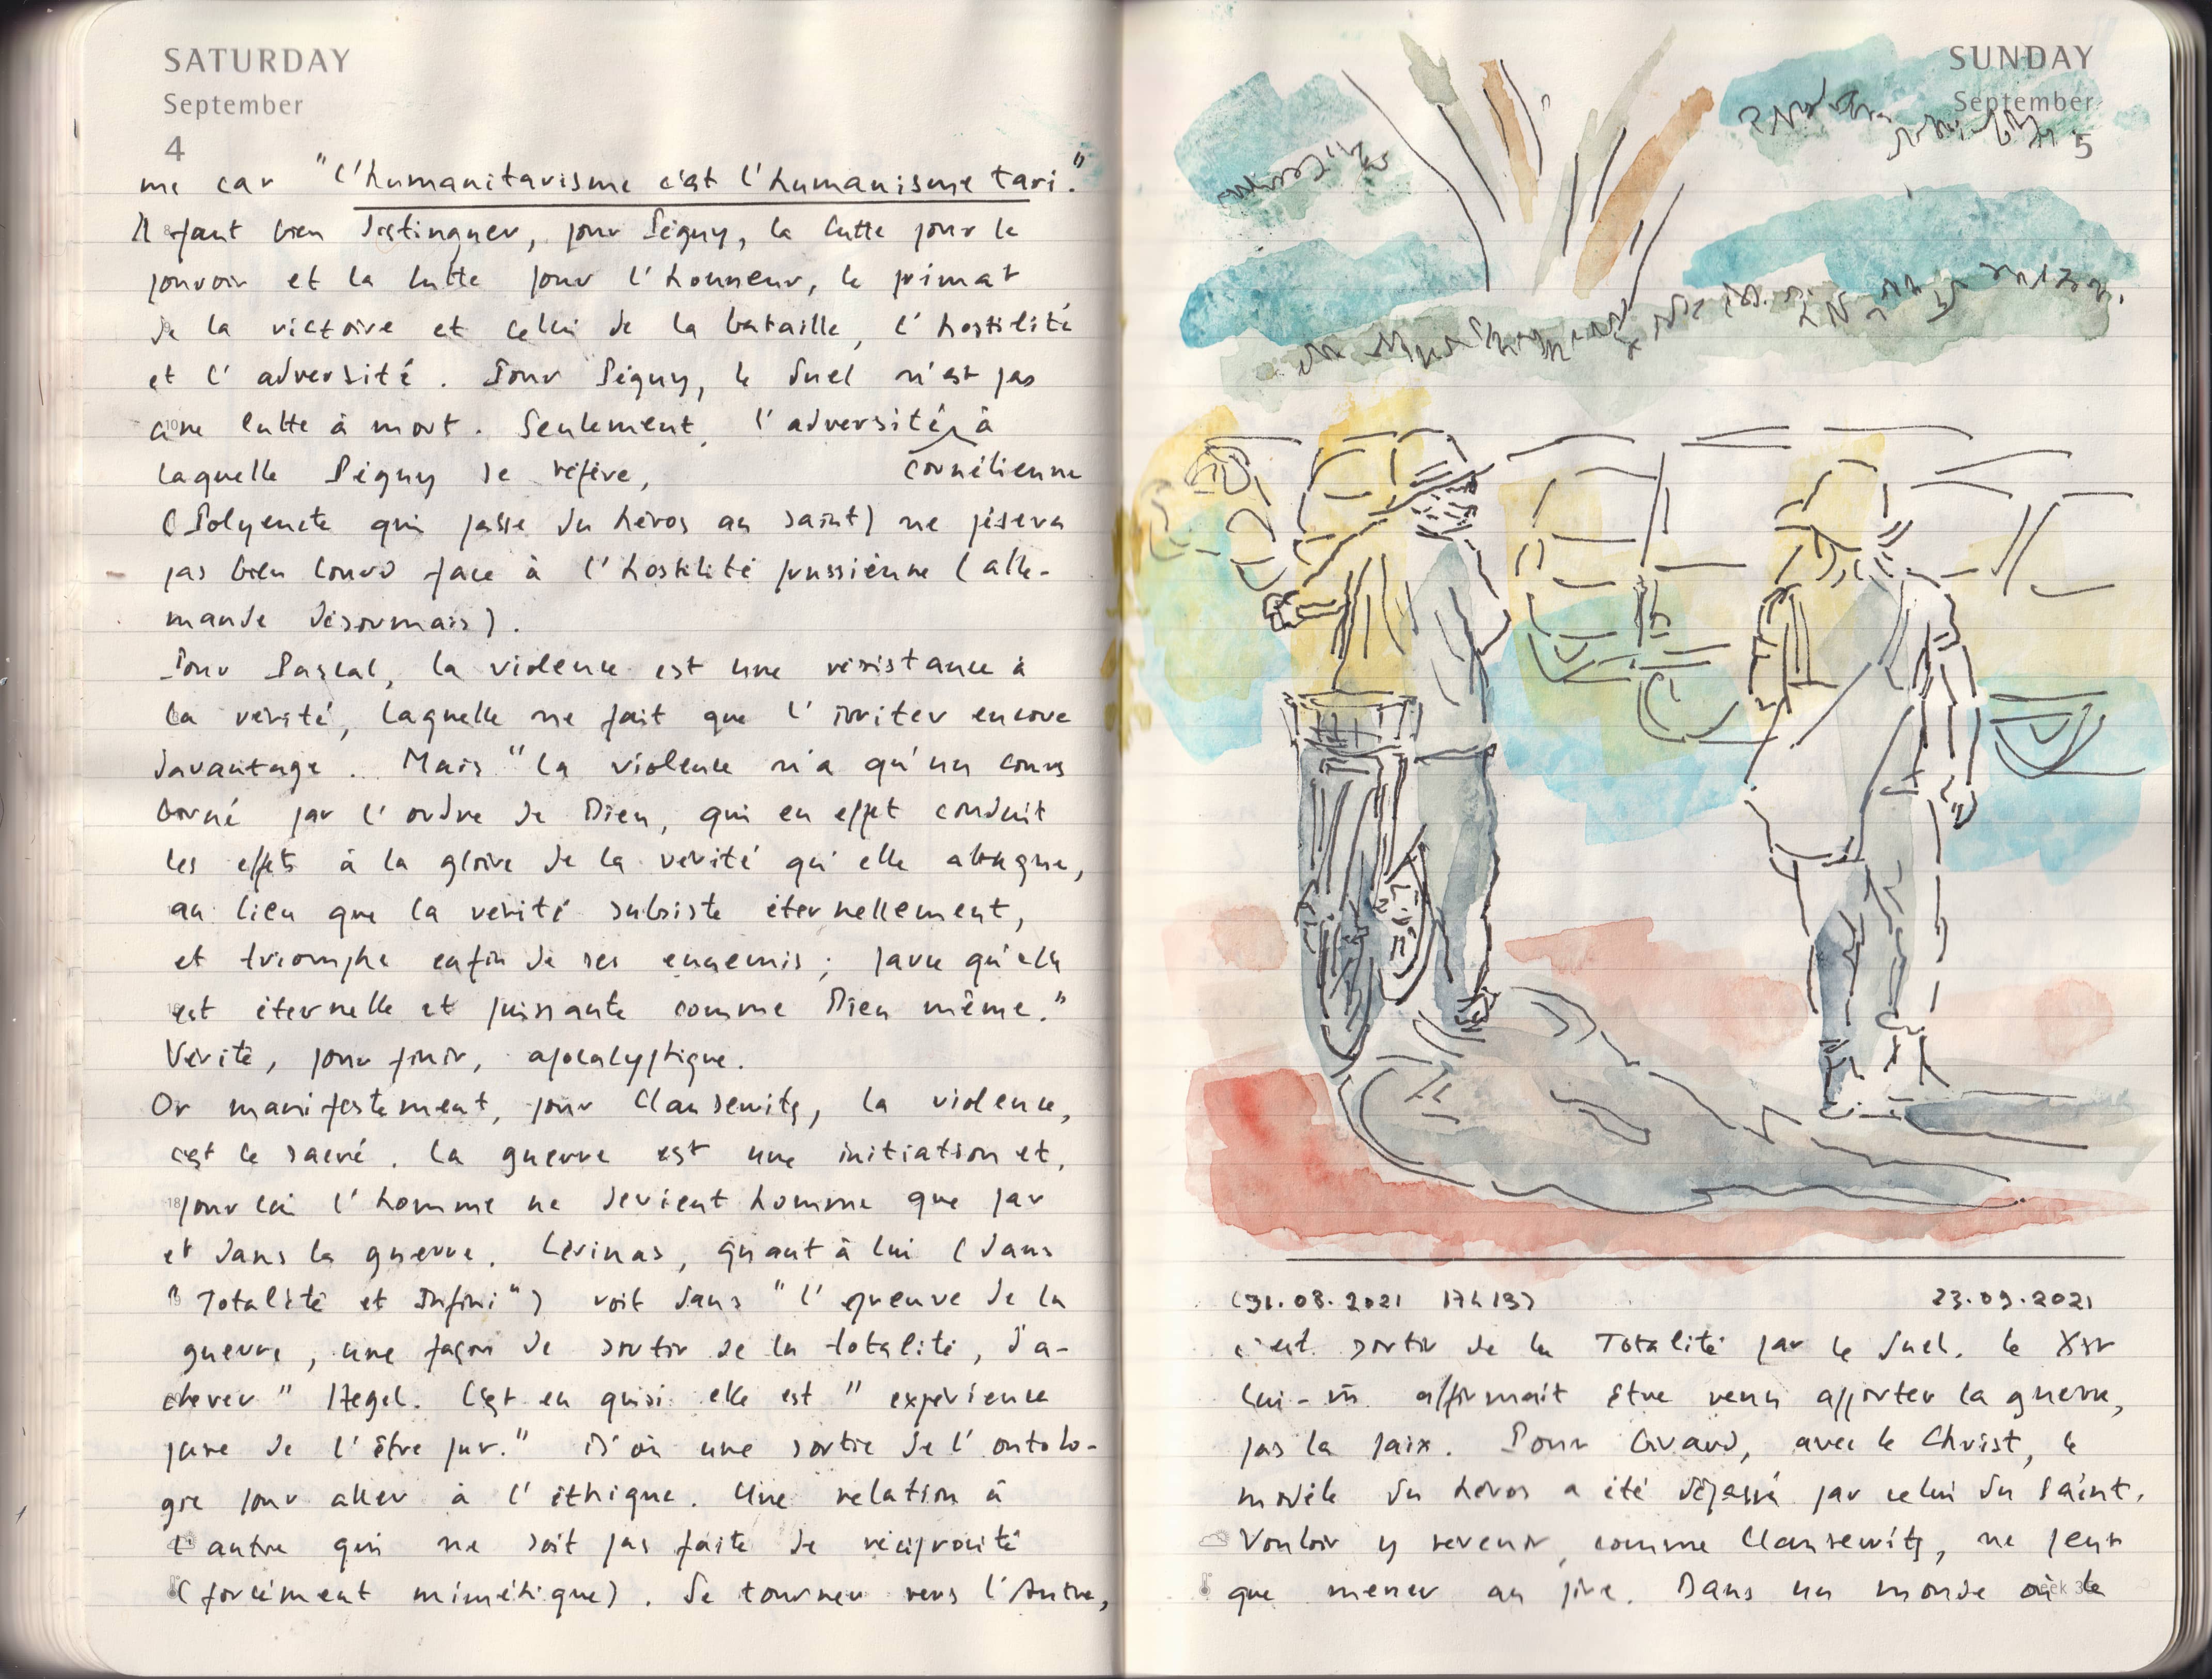 SATURDAY
September
4
me car "l'humanitarisme c'est l'humanisme tari."
Il faut bien distinguer, pour Péguy, la lutte pour le
pouvoir et la lutte pour l'honneur, le primat
de la victoire et celui de la bataille, l'hostilité
et l'adversité. Pour Péguy, le duel n'est pas
une lutte à mort. Seulement, l'adversité à
laquelle Péguy se réfère, cornélienne
(Polyeucte qui passe du héros au saint) ne pèsera
pas bien lourd face à l'hostilité prussienne (alle-
mande désormais).
Pour Pascal, la violence est une résistance à
la vérité, laquelle ne fait que l'irriter encore
davantage... Mais "la violence n'a qu'un cours
borné par l'ordre de Dieu, qui en effet conduit
les effets à la gloire de la vérité qu'elle attaque,
au lieu que la vérité subsiste éternellement,
et triomphe enfin de ses ennemis; parce qu'elle
est éternelle et puissante comme Dieu même."
Vérité, pour finir, apocalyptique.
Or manifestement, pour Clausewitz, la violence,
c'est le sacré. La guerre est une initiation et,
pour lui l'homme ne devient homme que par
et dans la guerre. Lévinas, quant à lui (dans
"Totalité et Infini") voit dans "l'épreuve de la
guerre, une façon de sortir de la totalité, d'a-
chever" Hegel. C'est en quoi elle est "expérience
pure de l'être pur." D'où une sortie de l'ontolo-
gie pour aller à l'éthique. Une relation à
l'autre qui ne soit pas faite de réciprocité
(forcément mimétique). Se tourner vers l'Autre,
SUNDAY
September
5
(31.08.2021 17h13) 23.09.2021
c'est sortir de la Totalité par le duel. Le Xst
lui-m̄ affirmait être venu apporter la guerre,
pas la paix. Pour Girard, avec le Christ, le
modèle du héros a été dépassé par celui du Saint.
Vouloir y revenir, comme Clausewitz, ne peut
que mener au pire. Dans un monde où le